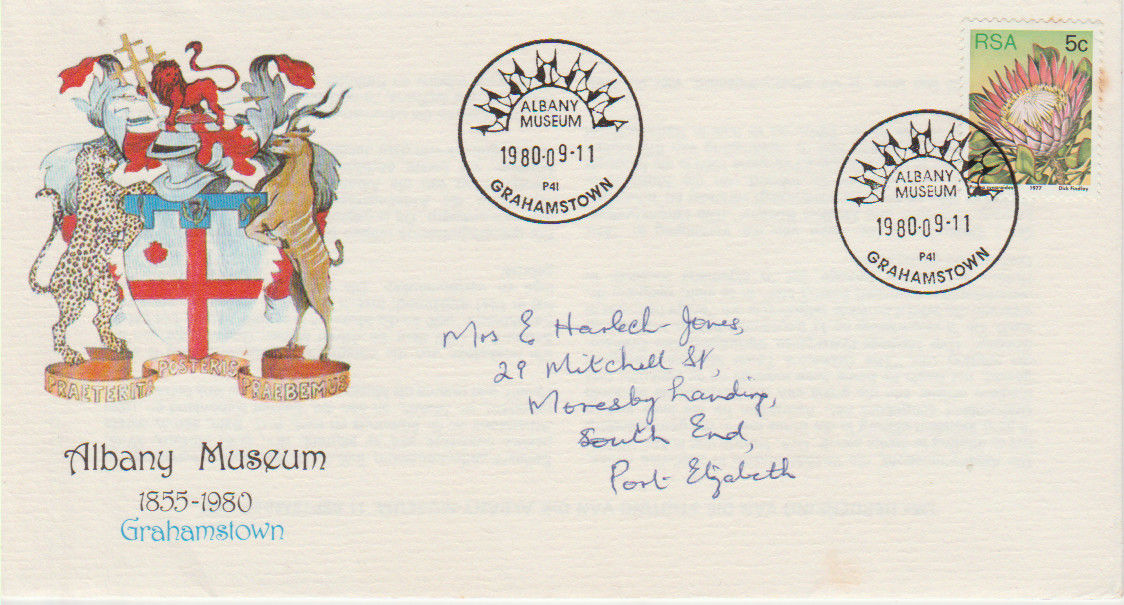 RSA 5c
1977 Dick Findlay
ALBANY
MUSEUM
1980·09-11
P41
GRAHAMSTOWN
ALBANY
MUSEUM
1980·09-11
P41
GRAHAMSTOWN
PRAETERITA POSTERIS PRAEBEMUS
Mrs E Harlech-Jones,
29 Mitchell St,
Moresby Landing,
South End,
Port Elizabeth
Albany Museum
1855-1980
Grahamstown